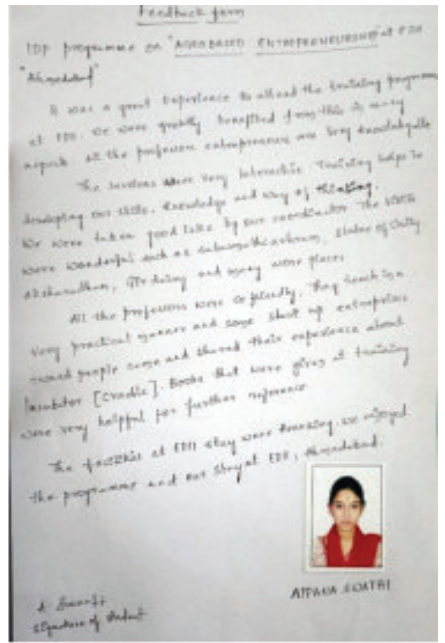 Feedback form
IDP programme on "AGRO BASED ENTREPRENEURSHIP" at EDII
"Ahmedabad"
It was a great Experience to attend the training programme
at EDII. We were greatly benefited from this in many
aspects all the professors entrepreneurs are very knowledgable
The sessions were very interactive Training helps in
developing our skills, knowledge and way of thinking.
We were taken good care by our coordinator The visits
were wonderful such as Sabarmathi ashram, Statue of Unity
Akshardham, and many more places
All the professors were so friendly. They teach in a
very practical manner and some start up entreprises
people came and shared their experience about
Incubator [Cradle]. Books that were given at training
were very helpful for further reference.
The at EDII stay were Amazing. We enjoyed
the programme and our stay at EDII, Ahmedabad.
A Swathi
Signature of student
APPANA SWATHI